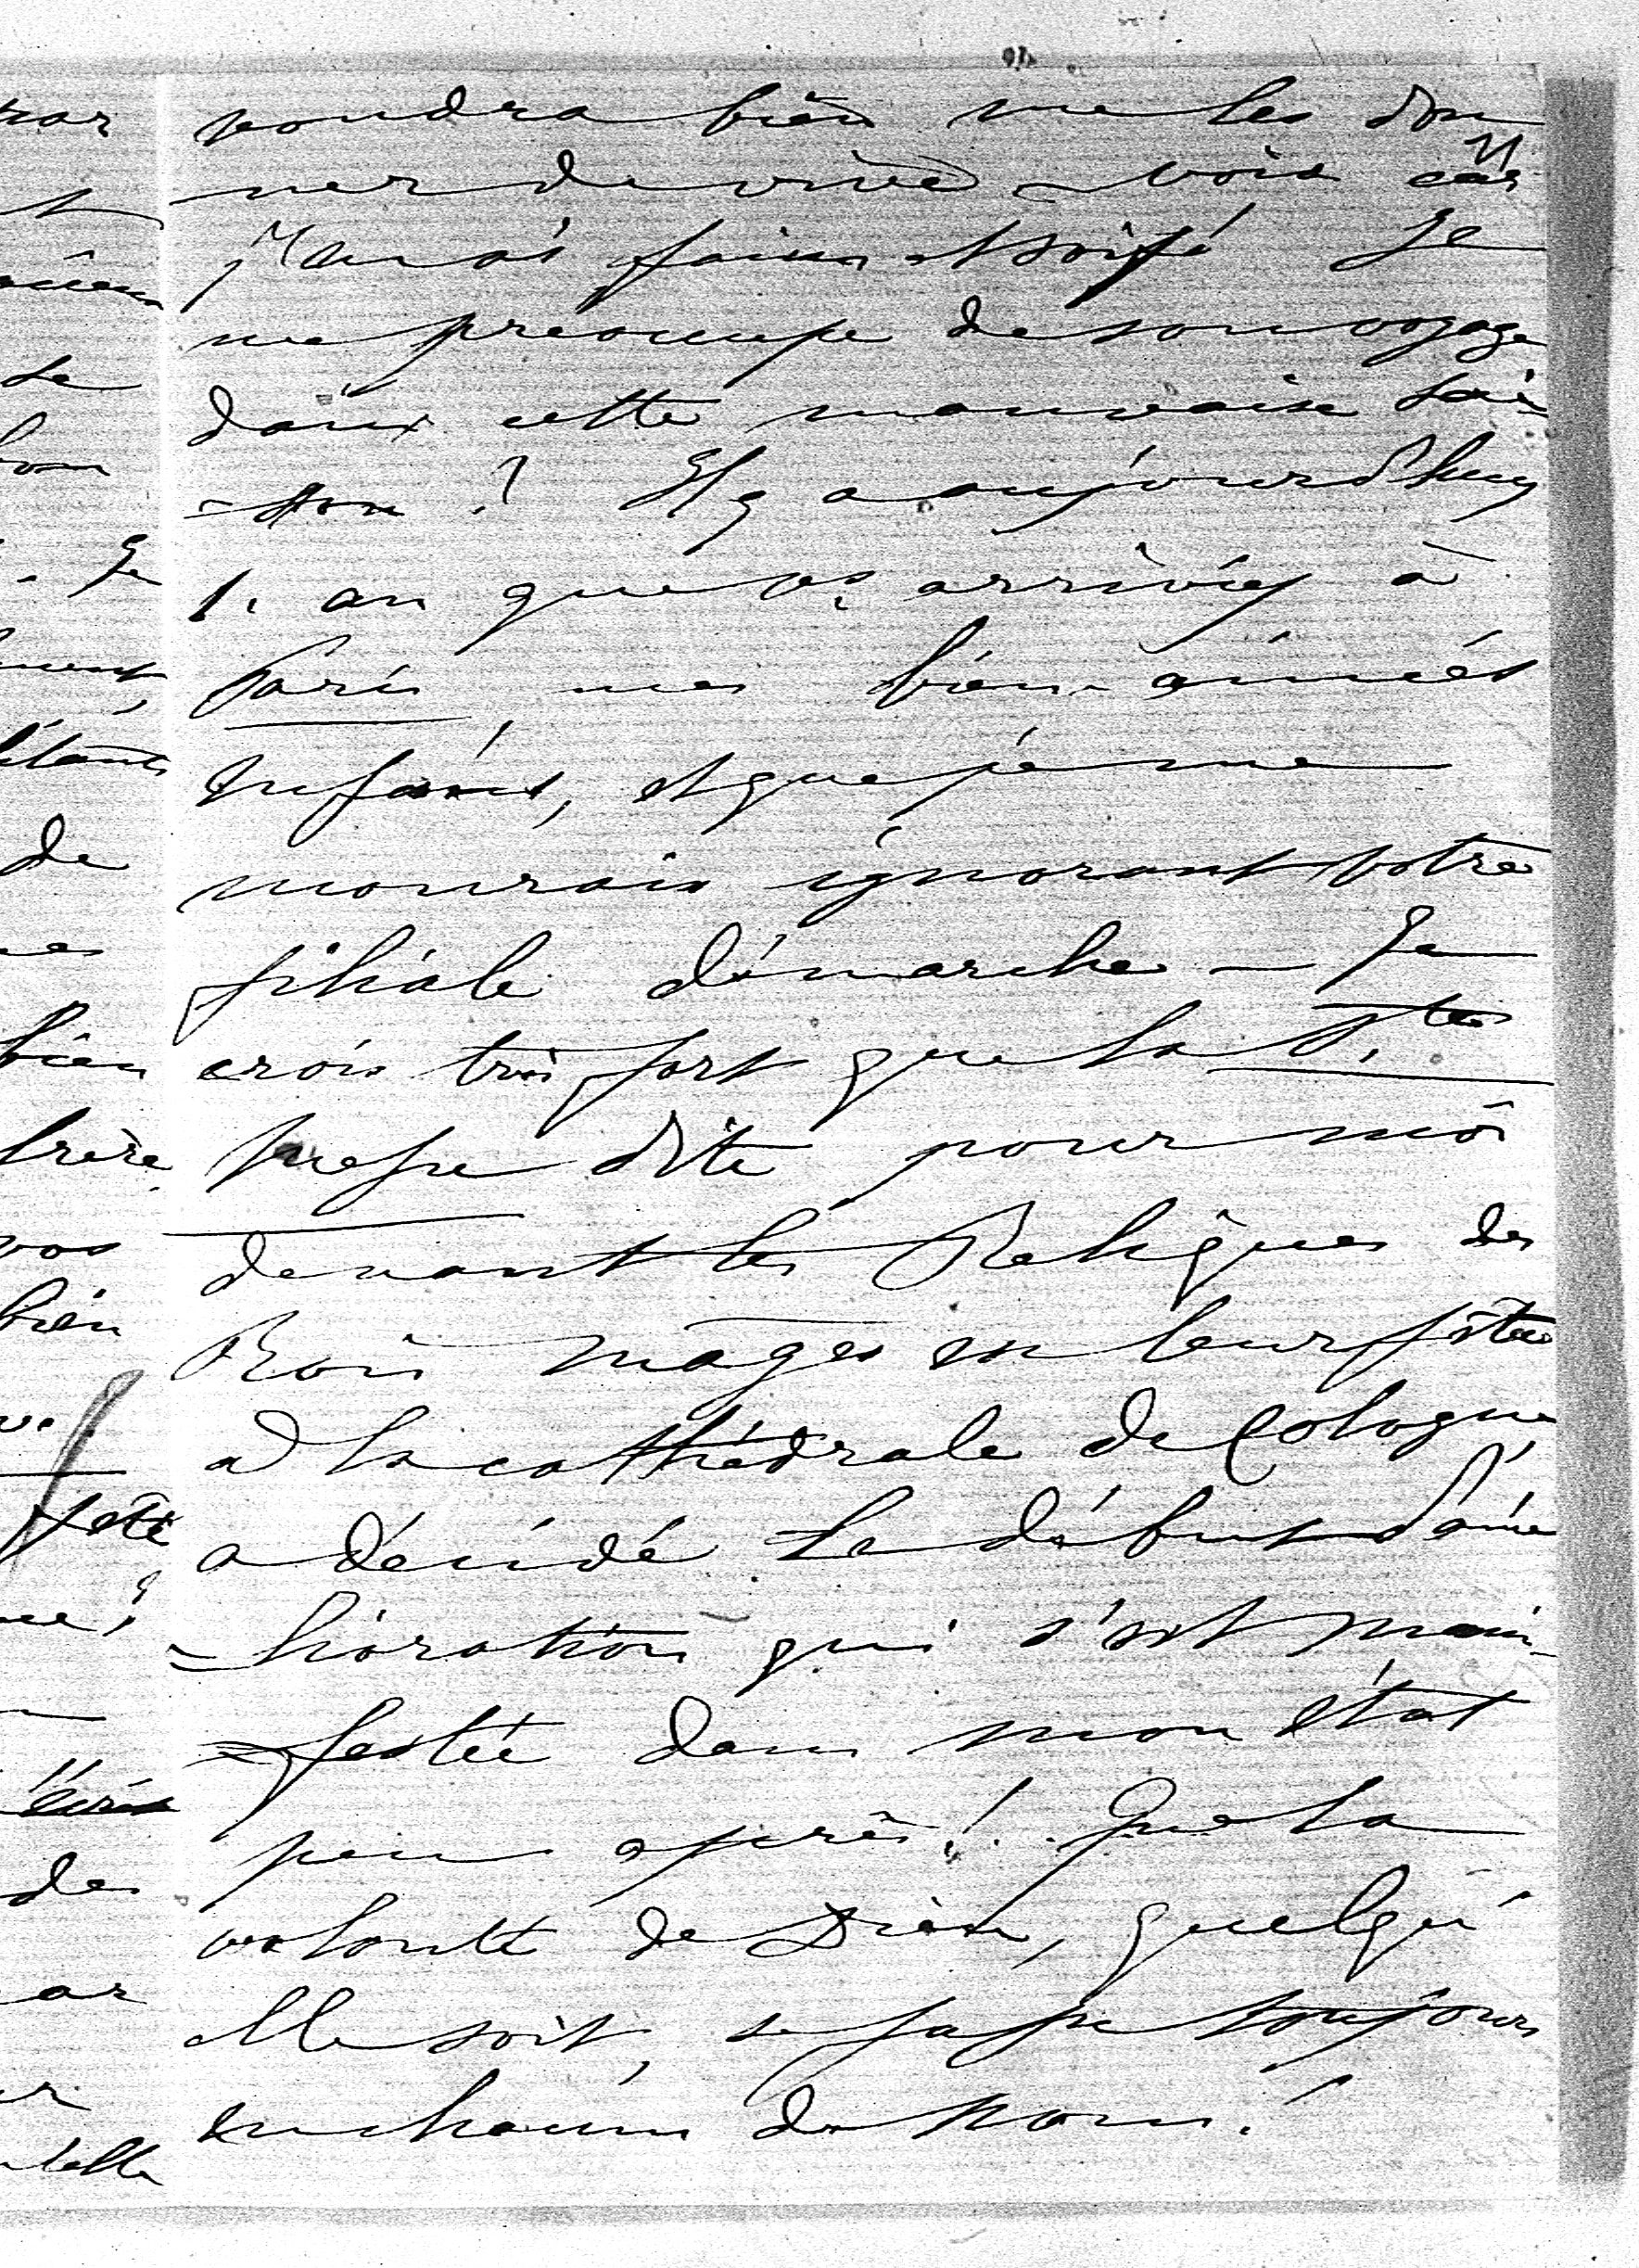 voudra bien me les don
ner de vive voix car
j'en ai faim et soif! Je
me préoccupe de son voyage
dans cette mauvaise sai
-son ? Il y a aujourd'huy
1. an que vs arriviez à
Paris mes bien-aimées
enfants, et que je me
mourais ignorant votre
filiale démarche — Je
crois très fort que la Ste
Messe dite pour moi
devant les Reliques des
Rois mages en leur fête
à la cathédrale de Cologne,
a décidé le début d'amé
=lioration qui s'est mani
=festée dans mon état
peu après! . Que la
volonté de Dieu, quelqu'
elle soit, se fasse toujours
en chacun de nous!